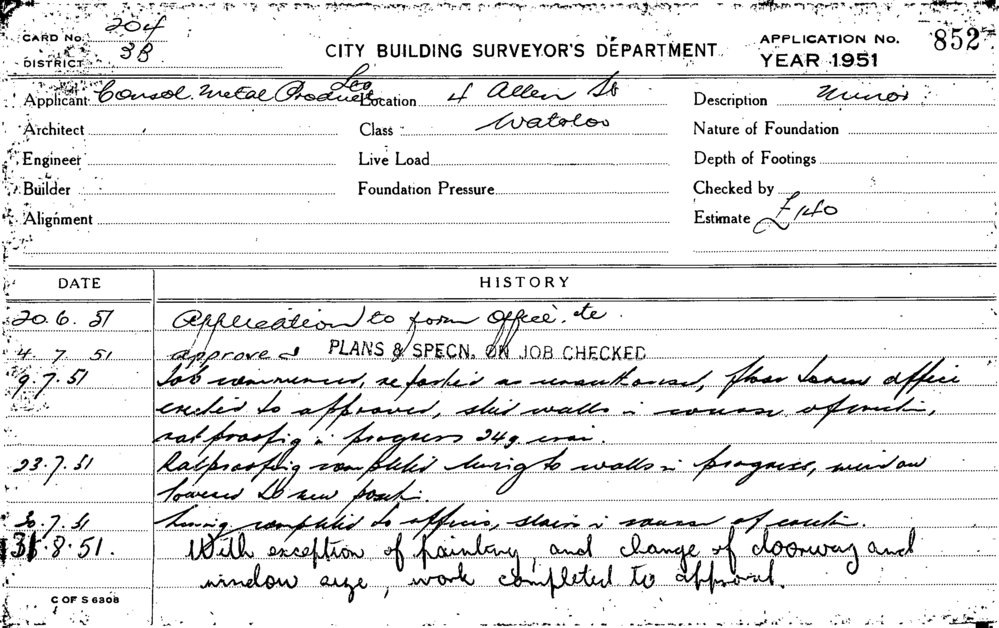 CARD No. 204
DISTRICT 3B
CITY BUILDING SURVEYOR'S DEPARTMENT
APPLICATION No. 852
YEAR 1951
Applicant Consol. Metal Products Location 4 Allen St
Description Minor
Architect
Class Waterloo
Nature of Foundation
Engineer
Live Load
Depth of Footings
Builder
Foundation Pressure
Checked by
Alignment
Estimate £140
DATE HISTORY
20.6.51 Application to form office etc.
4.7.51 approved PLANS & SPECN. ON JOB CHECKED
9.7.51 Job commenced, as unauthorised, floor office
erected to approved, stud walls in course of erection,
ratproofing in progress 24g iron.
23.7.51 Ratproofing completed lining to walls in progress, window
lowered to new position.
30.7.51 lining completed to offices, stairs in course of erection.
31.8.51. With exception of painting, and change of doorway and
window size, work completed to approval.
C OF S 6308